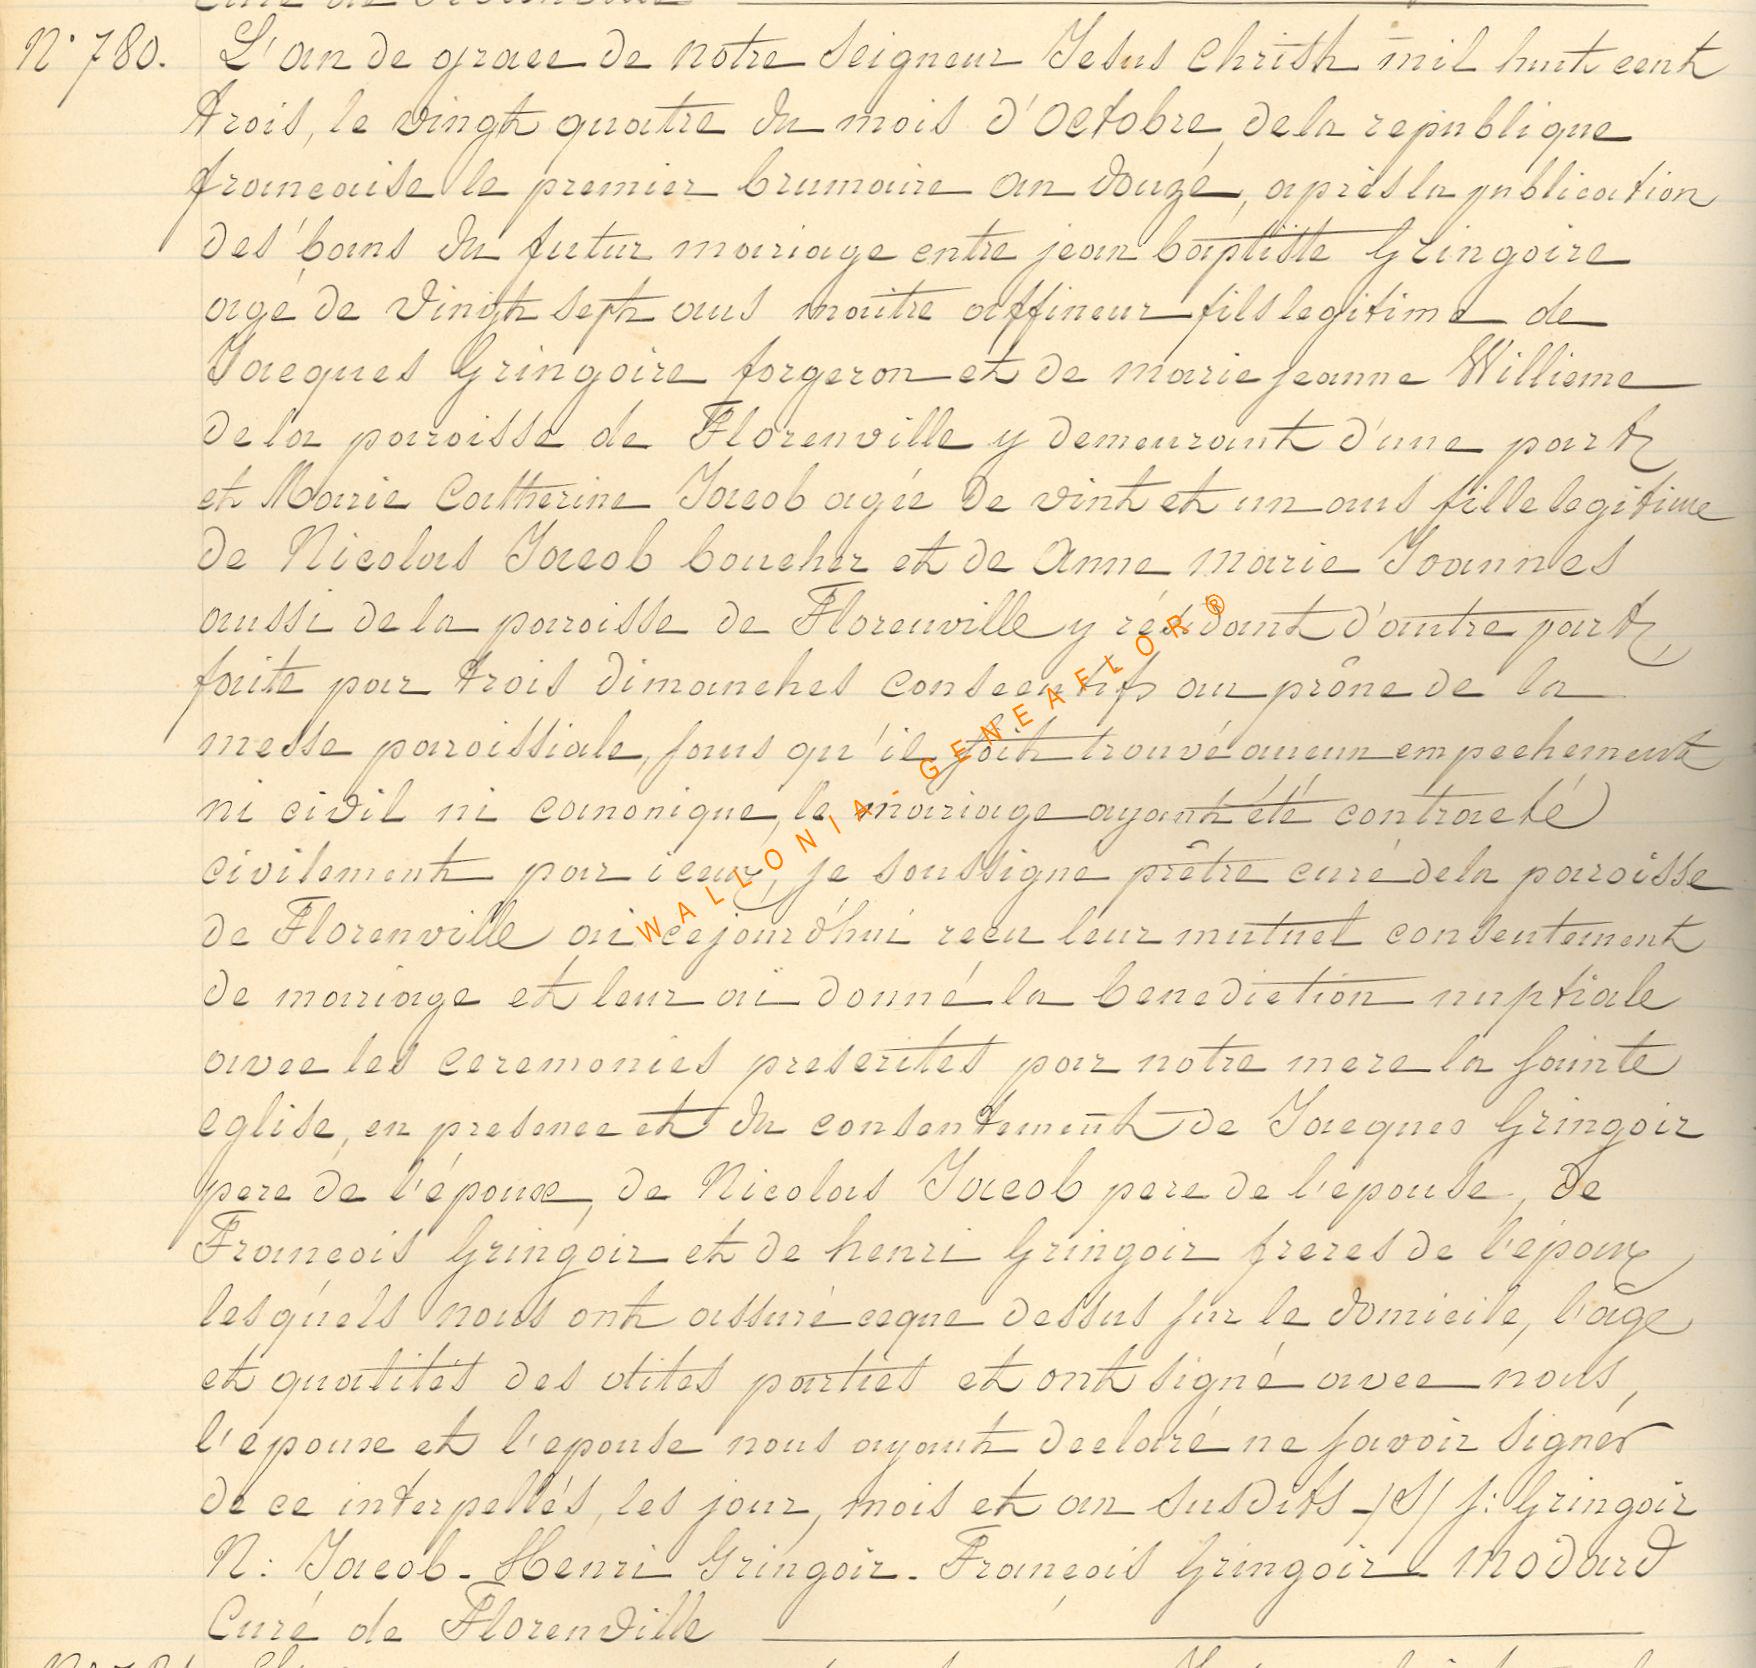 N° 780. L'an de grace de notre Seigneur Jesus Christ mil huit cent
trois, le vingt quatre du mois d'Octobre, de la republique
francaise le premier brumaire an douze, après la publication
des bans du futur mariage entre jean baptiste Gringoire
agé de vingt sept ans maitre affineur fils legitime de
Jacques Gringoire forgeron et de marie jeanne Willieme
de la paroisse de Florenville y demeurant d'une part
et Marie Catherine Jacob agée de vint et un ans fille legitime
de Nicolas Jacob boucher et de Anne Marie Joannes
aussi de la paroisse de Florenville y résidant d'autre part,
faite par trois dimanches consecutifs au prône de la
messe paroissiale, sans qu'il soit trouvé aucun empechement
ni civil ni canonique, le mariage ayant été contracté
civilement par iceux, je soussigne prêtre curé de la paroisse
de Florenville ai cejourd'hui recu leur mutuel consentement
de mariage et leur ai donné la benediction nuptiale
avec les ceremonies prescrites par notre mere la sainte
eglise, en presence et du consentement de Jacques Gringoir
pere de l'époux, de Nicolas Jacob pere de l'epouse, de
Francois Gringoir et de henri Gringoir freres de l'époux
lesquels nous ont assuré ceque dessus sur le domicile, l'age
et qualités des dites parties et ont signé avec nous,
l'époux et l'epouse nous ayant declaré ne savoir signer
de ce interpellés, les jour, mois et an susdits - /S/ J: Gringoir
N: Jacob - Henri Gringoir - François Gringoir - Modard
Curé de Florenville
WALLONIA - GENEAFLOR ®